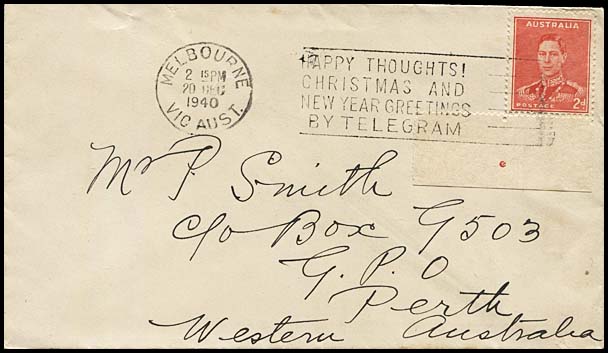 MELBOURNE
2 15PM
20 DEC
1940
VIC AUST.
HAPPY THOUGHTS!
CHRISTMAS AND
NEW YEAR GREETINGS
BY TELEGRAM
AUSTRALIA
POSTAGE 2d
Mr P. Smith
c/o Box G503
G.P.O
Perth
Western Australia